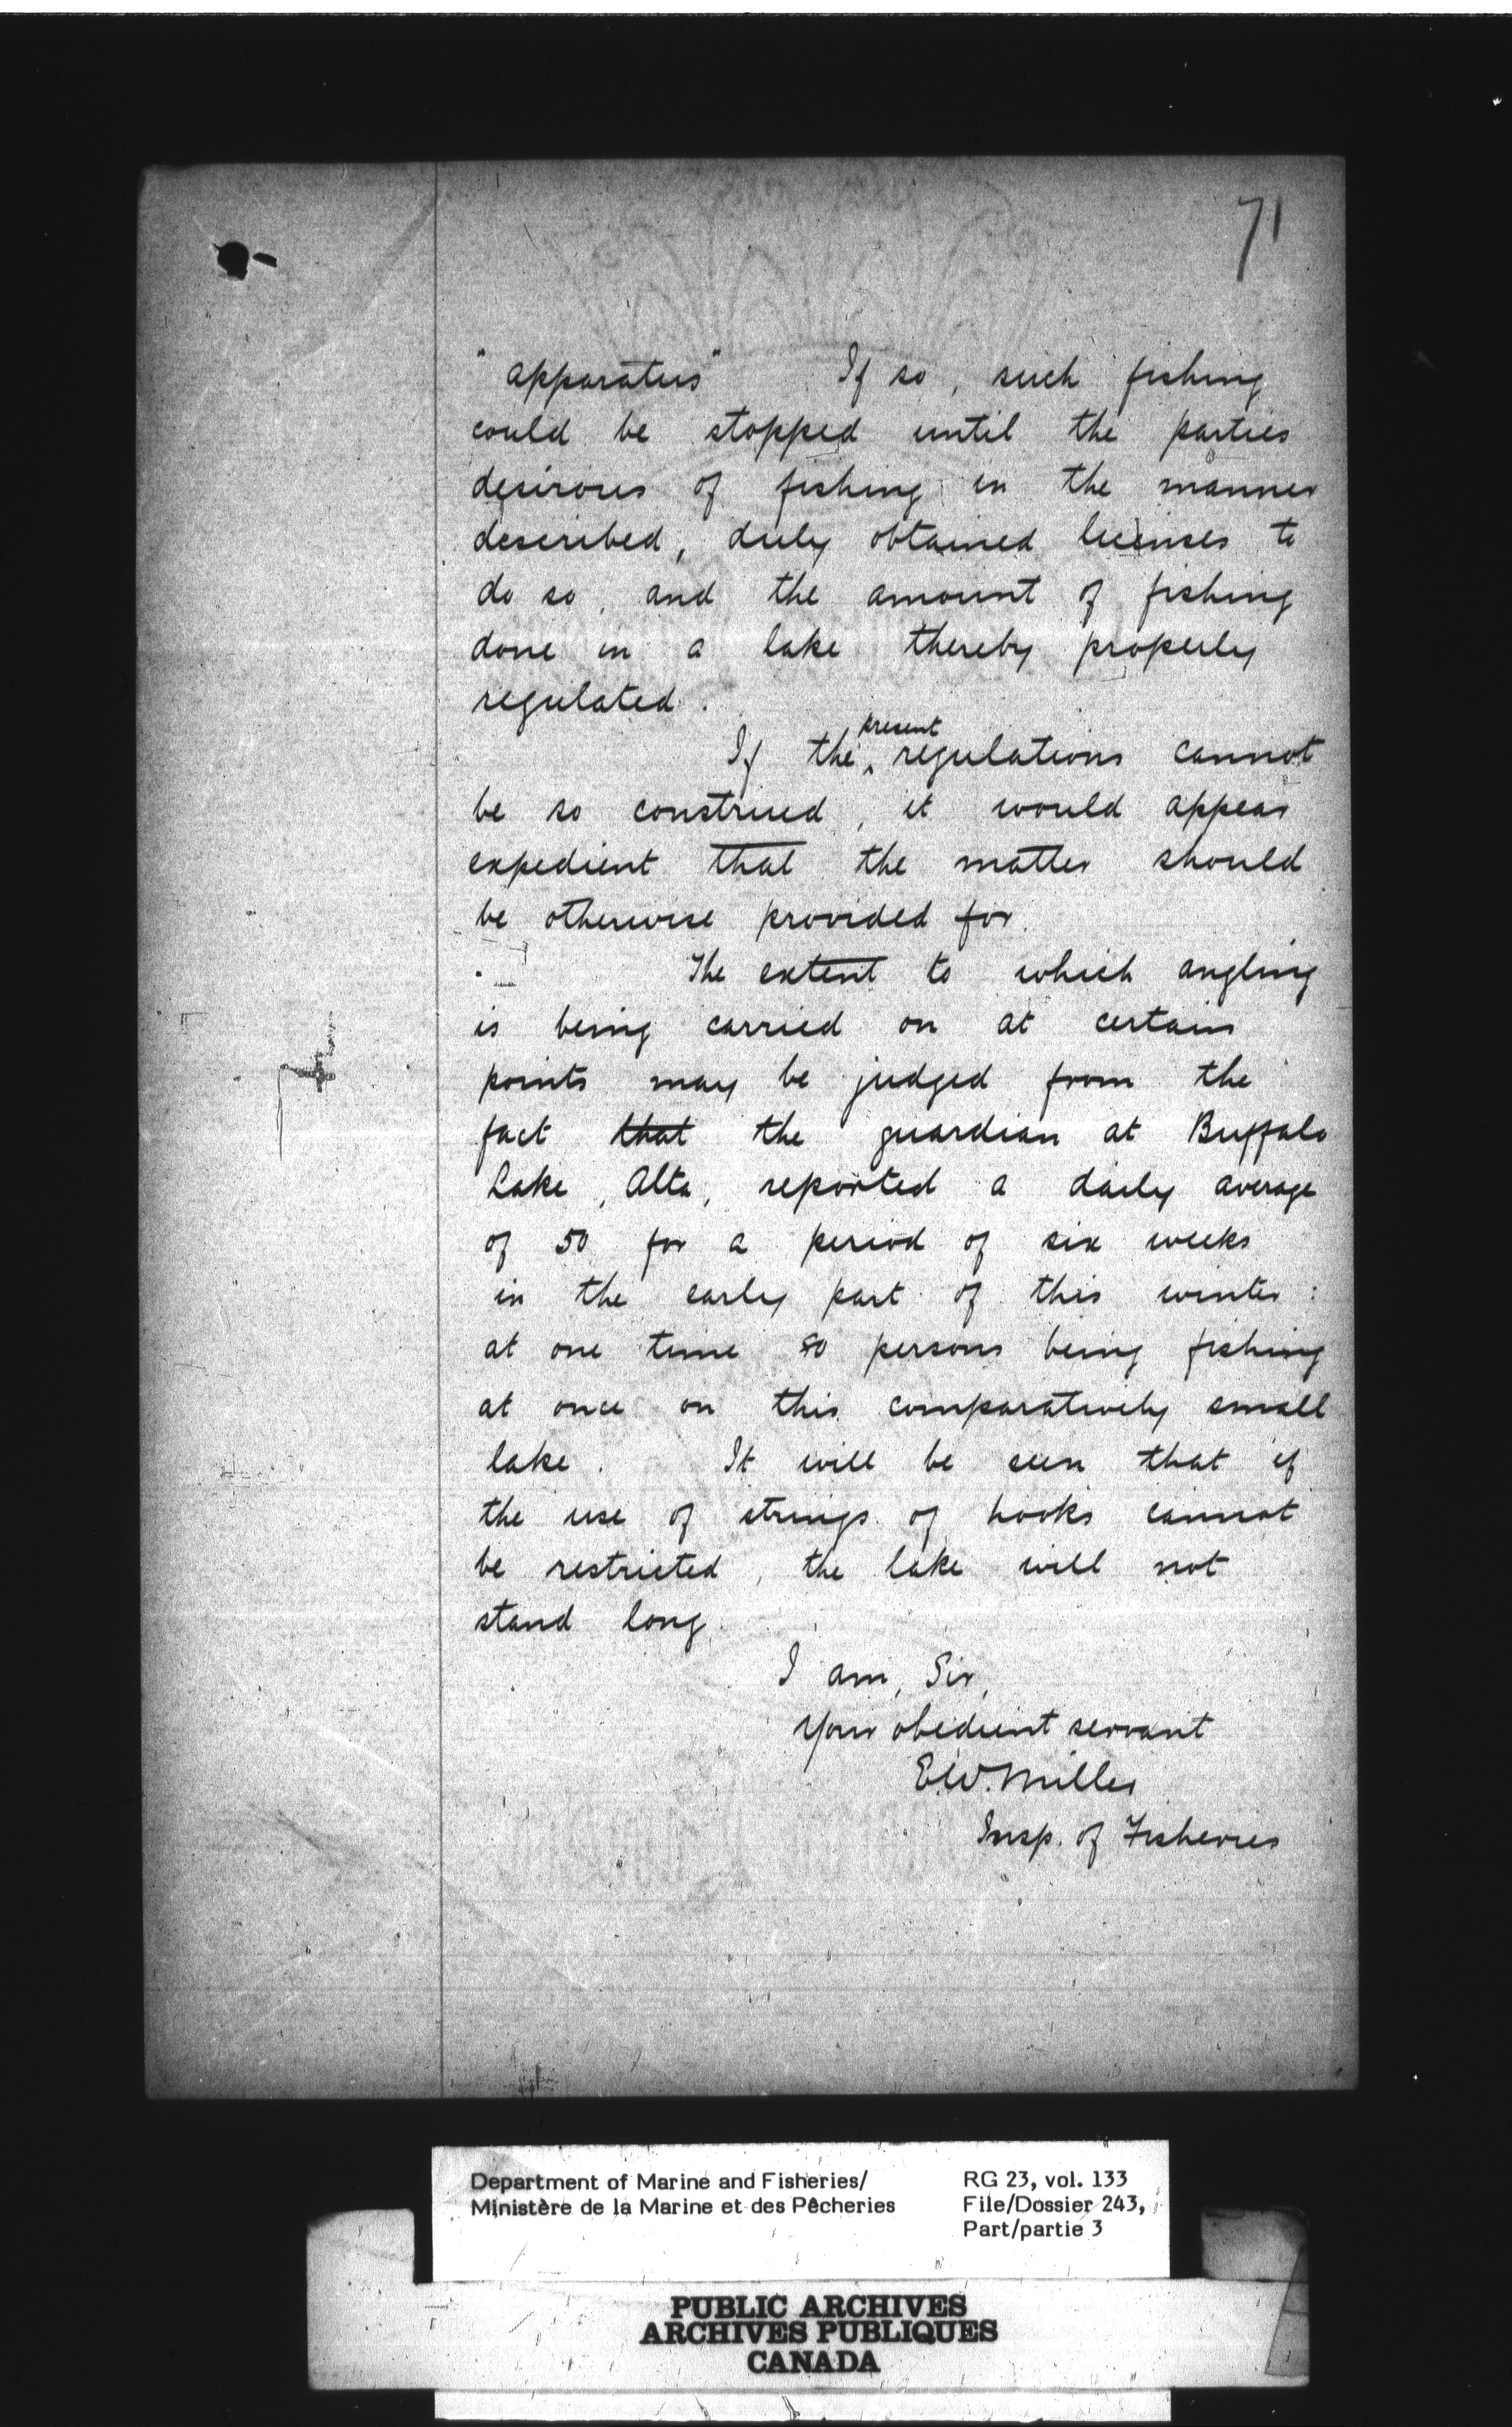 71
"apparatus" If so, such fishing
could be stopped until the parties
desirous of fishing in the manner
described, duly obtained licenses to
do so, and the amount of fishing
done in a lake thereby properly
regulated.
If the ^present regulations cannot
be so construed, it would appear
expedient that the matter should
be otherwise provided for.
The extent to which angling
is being carried on at certain
points may be judged from the
fact that the guardian at Buffalo
Lake, Alta, reported a daily average
of 50 for a period of six weeks
in the early part of this winter:
at one time 80 persons being fishing
at once on this comparatively small
lake. It will be seen that if
the use of strings of hooks cannot
be restricted, the lake will not
stand long.
I am, Sir,
Your obedient servant
E.W. Miller
Insp. of Fisheries
Department of Marine and Fisheries/
Ministère de la Marine et des Pêcheries
RG 23, vol. 133
File/Dossier 243,
Part/partie 3
PUBLIC ARCHIVES
ARCHIVES PUBLIQUES
CANADA